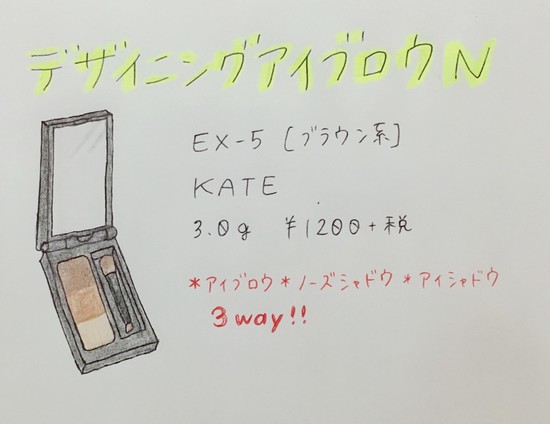 デザイニングアイブロウN
EX-5 [ブラウン系]
KATE
3.0g ¥1200+税
*アイブロウ*ノーズシャドウ*アイシャドウ
3way!!